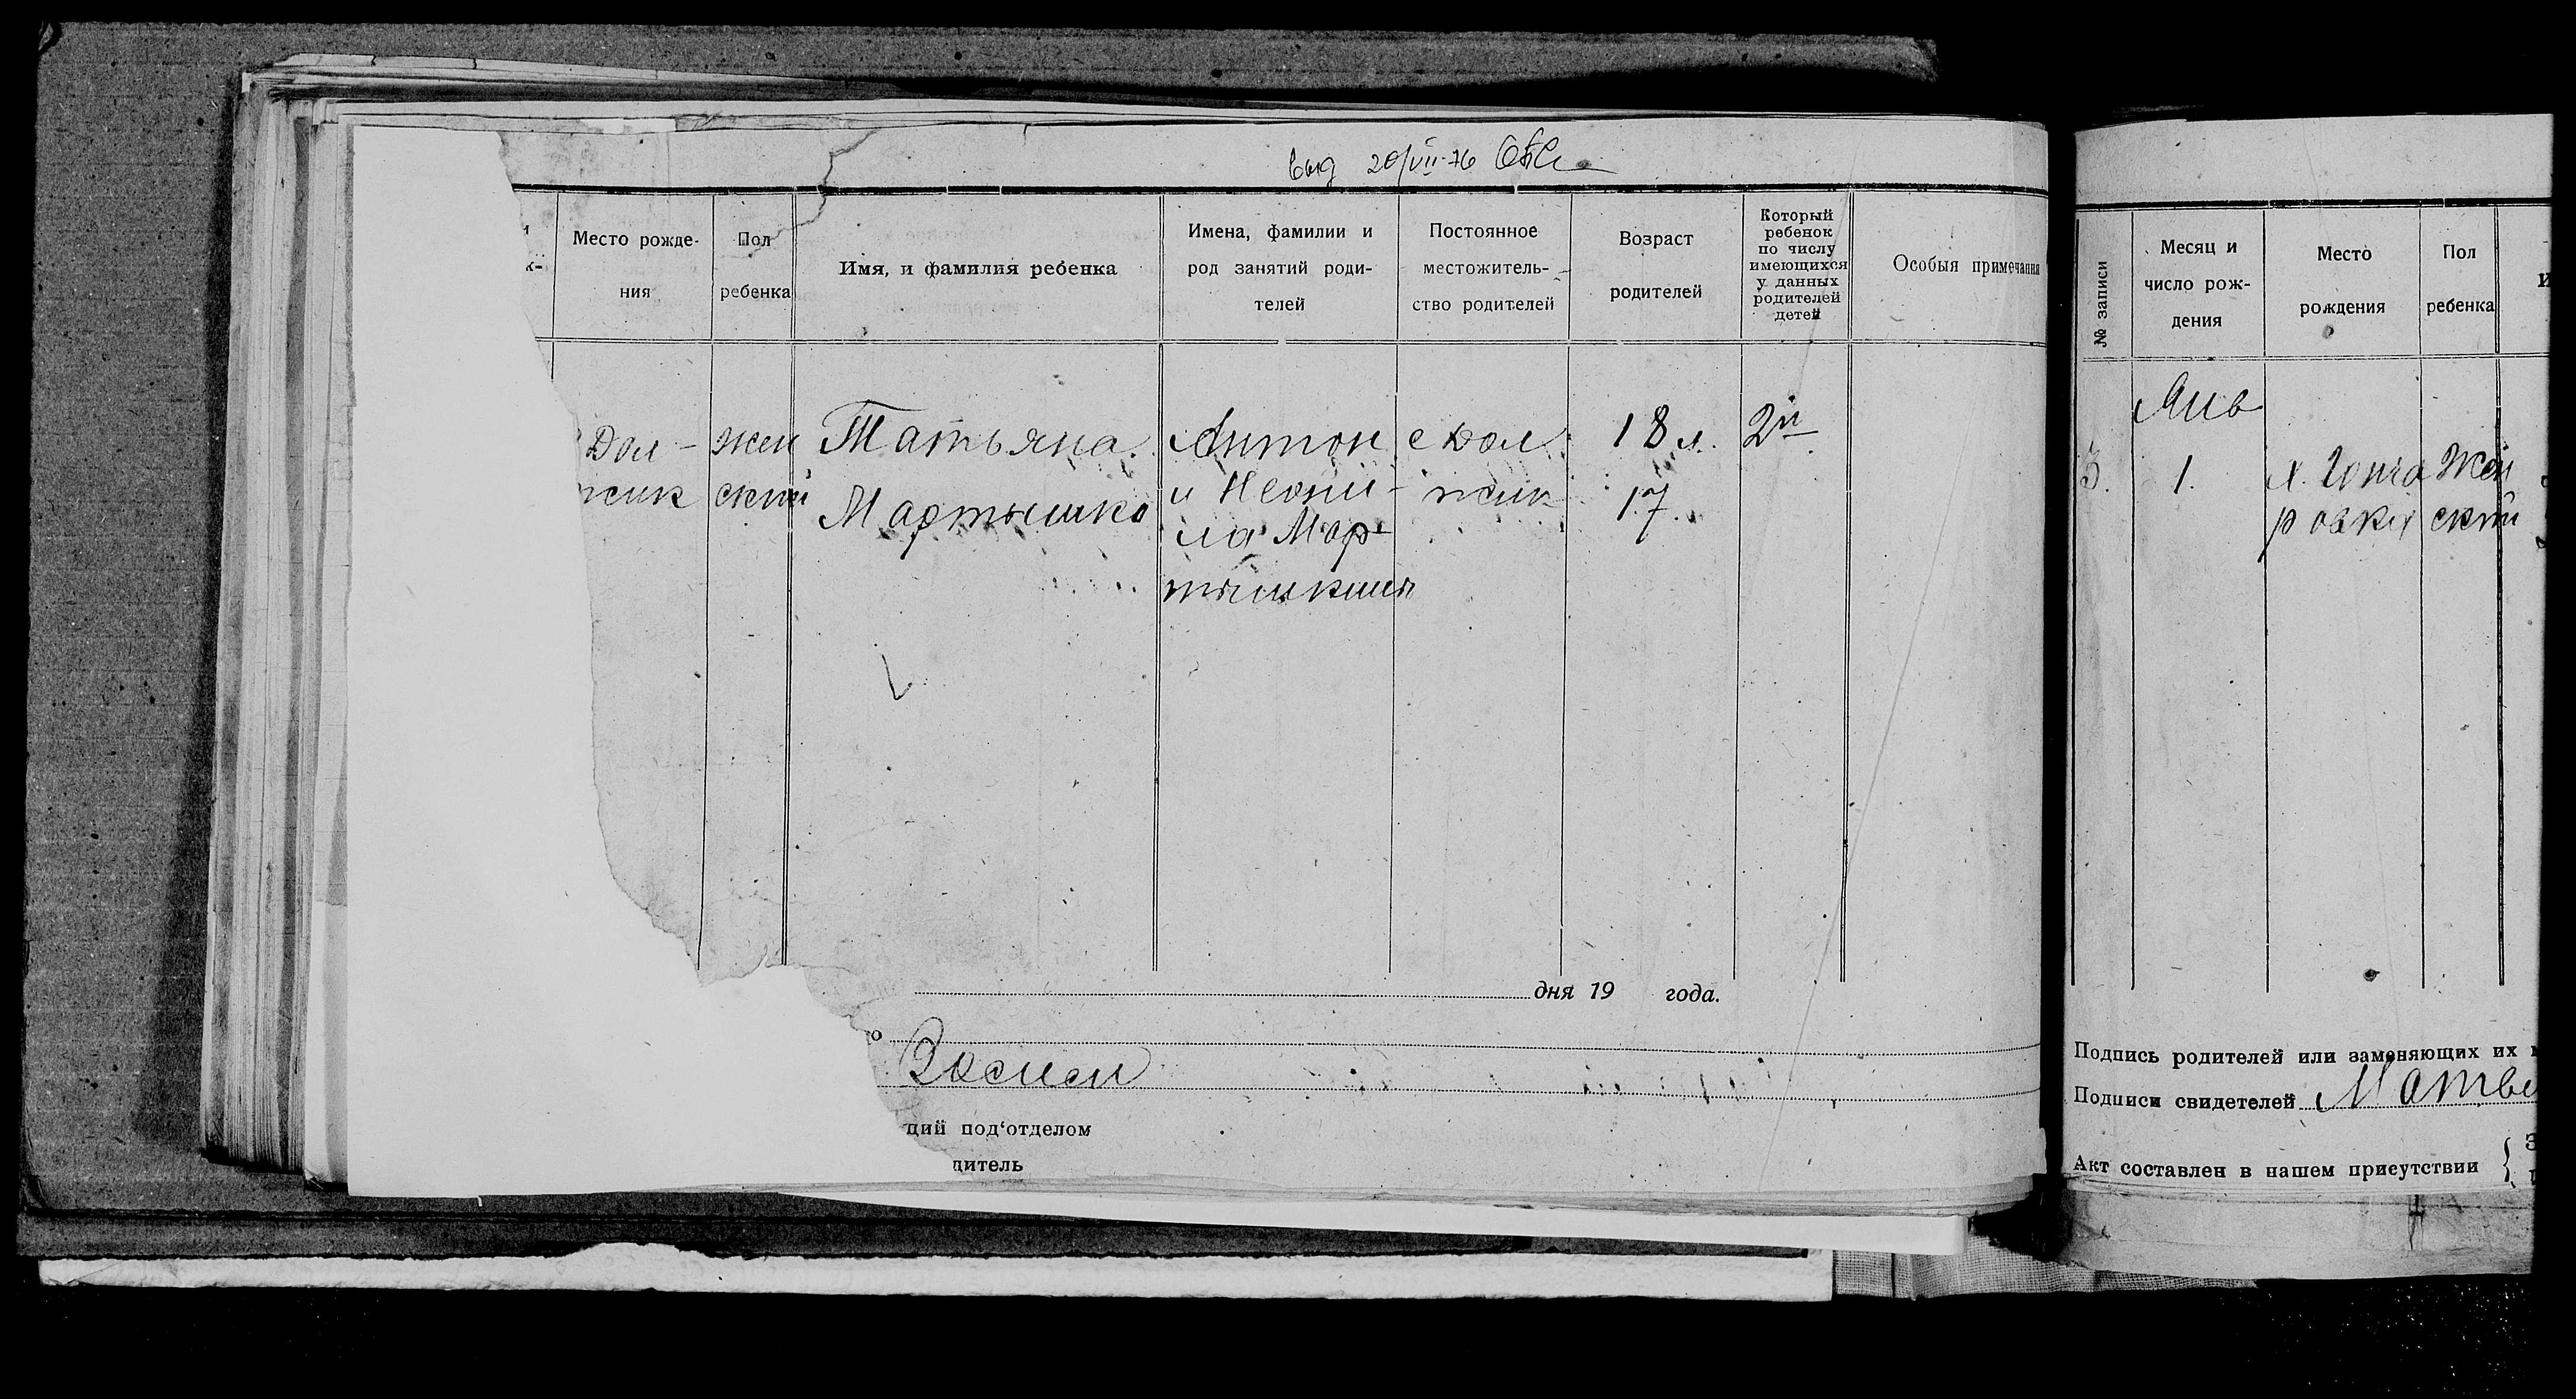 выд 20/VII-76
Место рожде-
ния
Пол
ребенка
Имя, и фамилия ребенка
Имена, фамилии и
род занятий роди-
телей
Постоянное
местожитель-
ство родителей
Возраст
родителей
Который
ребенок
по числу
имеющихся
у данных
родителей
детей
Особыя примечания
Дол-
жик
жен
ский
Татьяна
Мартышко
Антон
и Неони-
ла Мар-
тышкины
с Дол
жик
18 л.
17
2й
дня 19 года.
щий под'отделом
дитель
№ записи
Месяц и
число рож-
дения
Место
рождения
Пол
ребенка
3.
Янв
1.
х. Гонча
ровка
Жен
ский
Подпись родителей или заменяющих их
Подписи свидетелей Матве
Акт составлен в нашем присутствии {